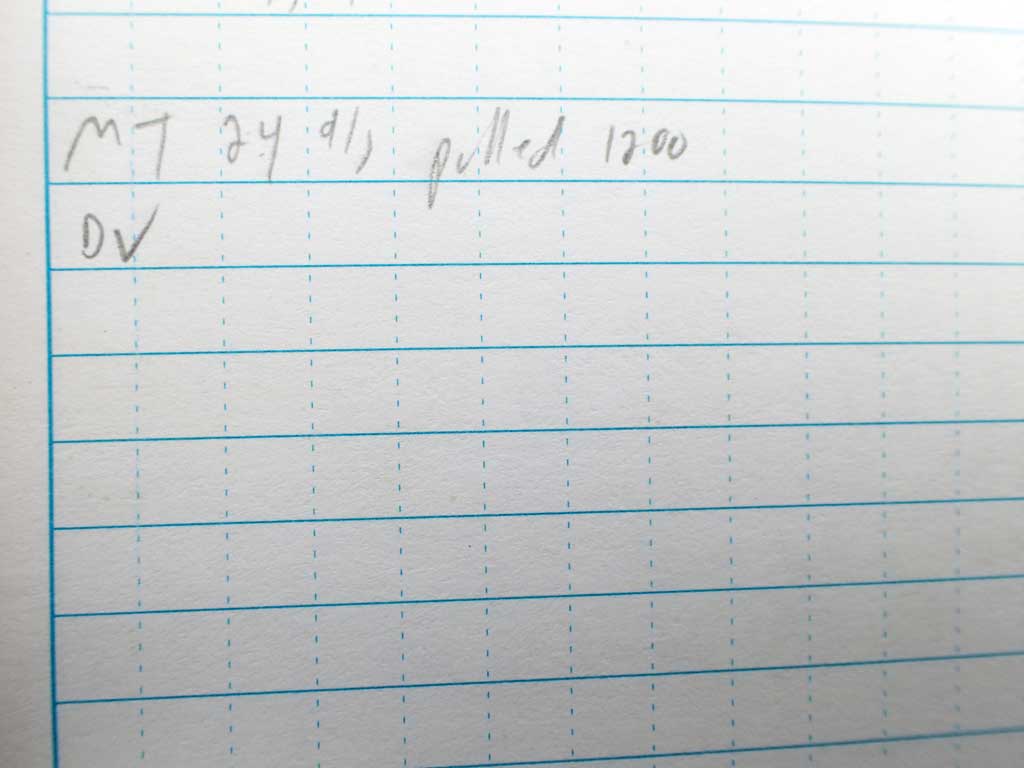 MT 24 pulled 1200
DV